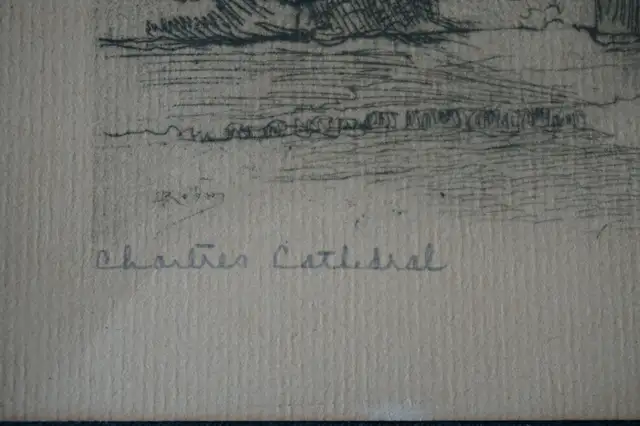 Chartres Cathedral